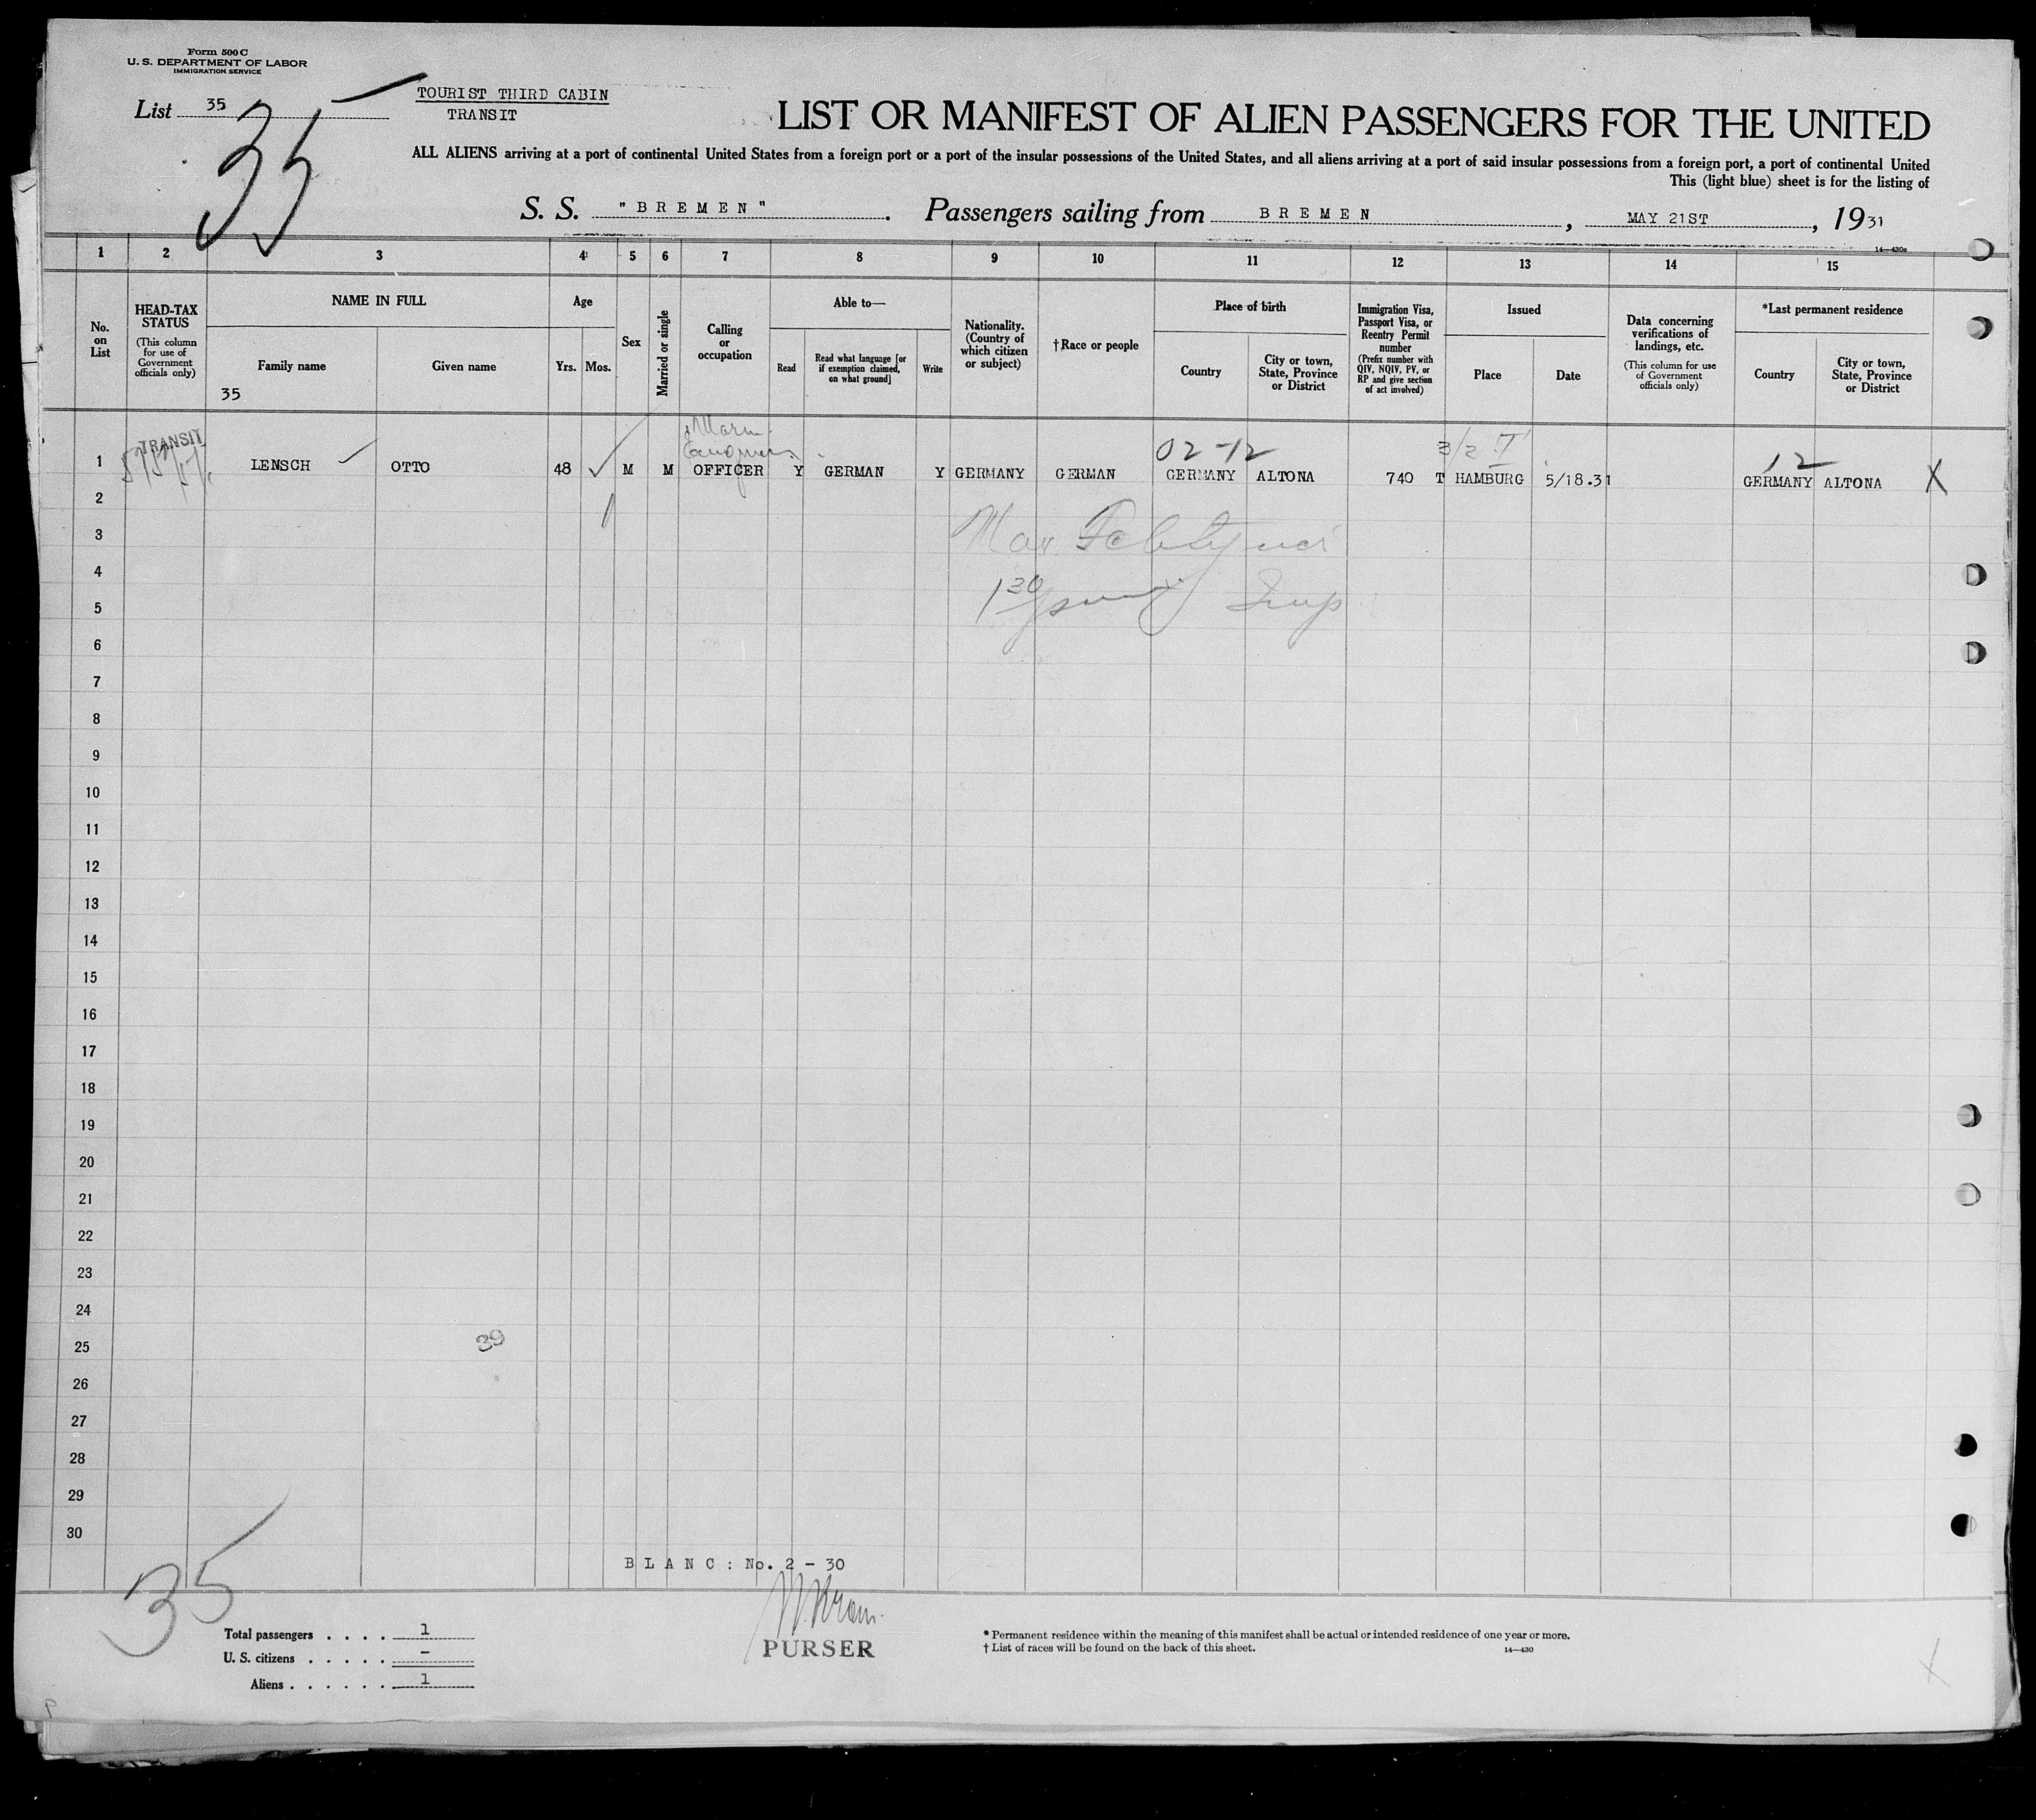 Form 500 C
U. S. DEPARTMENT OF LABOR
IMMIGRATION SERVICE
List 35
35
TOURIST THIRD CABIN
TRANSIT
LIST OR MANIFEST OF ALIEN PASSENGERS FOR THE UNITED
ALL ALIENS arriving at a port of continental United States from a foreign port or a port of the insular possessions of the United States, and all aliens arriving at a port of said insular possessions from a foreign port, a port of continental United
This (light blue) sheet is for the listing of
S. S. "BREMEN". Passengers sailing from BREMEN, MAY 21ST, 1931
14—430a
1 2 3 4 5 6 7 8 9 10 11 12 13 14 15
No. on List
HEAD-TAX STATUS (This column for use of Government officials only)
NAME IN FULL
Family name
Given name
35
Age
Yrs. Mos.
Sex
Married or single
Calling or occupation
Able to—
Read
Read what language [or if exemption claimed, on what ground]
Write
Nationality. (Country of which citizen or subject)
†Race or people
Place of birth
Country
City or town, State, Province or District
Immigration Visa, Passport Visa, or Reentry Permit number (Prefix number with QIV, NQIV, PV, or RP and give section of act involved)
Issued
Place
Date
Data concerning verifications of landings, etc. (This column for use of Government officials only)
*Last permanent residence
Country
City or town, State, Province or District
TRANSIT
02-12
3/2 T
12
1 LENSCH OTTO 48 M M OFFICER Y GERMAN Y GERMANY GERMAN GERMANY ALTONA 740 T HAMBURG 5/18.31 GERMANY ALTONA X
2
3
4
5
6
7
8
9
10
11
12
13
14
15
16
17
18
19
20
21
22
23
24
25
39
26
27
28
29
30
BLANC: No. 2 - 30
35
PURSER
Total passengers . . . . 1
U. S. citizens . . . . . -
Aliens . . . . . . 1
* Permanent residence within the meaning of this manifest shall be actual or intended residence of one year or more.
† List of races will be found on the back of this sheet.
14—430
X